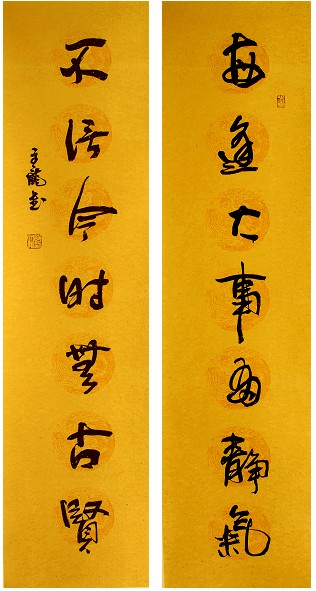 每逢大事有靜氣
不信今时無古賢
子龍書